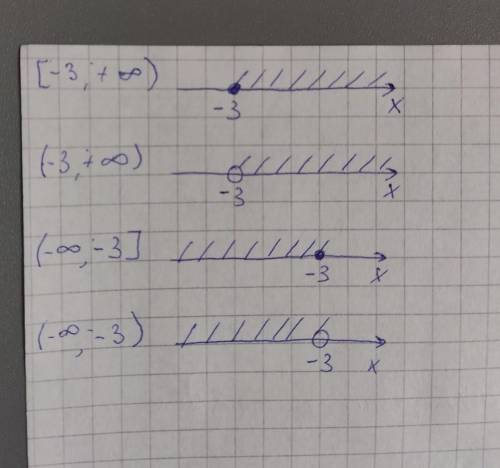 [-3; +∞)
-3 x
(-3; +∞)
-3 x
(-∞; -3]
-3 x
(-∞; -3)
-3 x